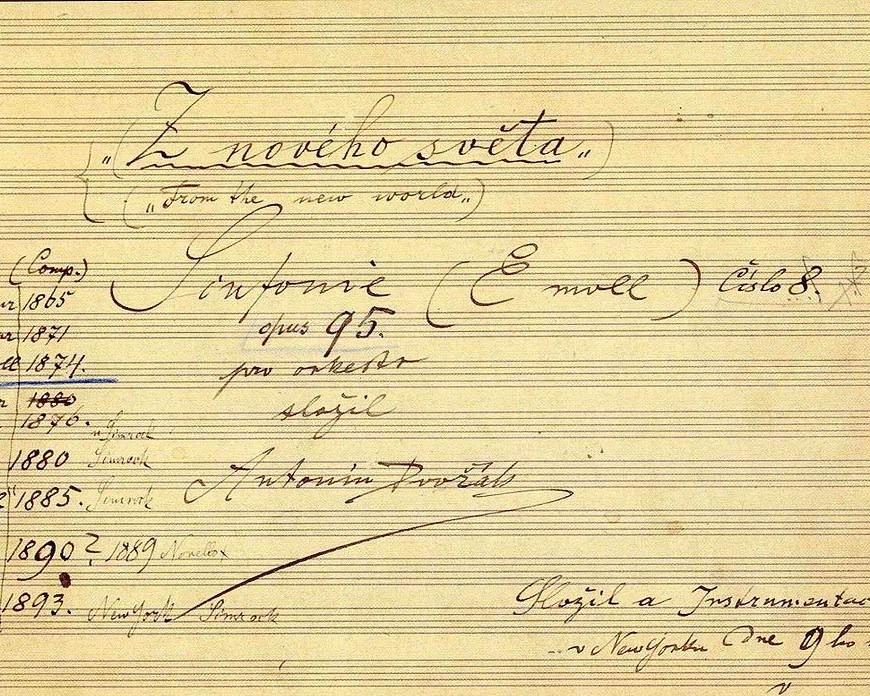 „Z nového světa„
(„From the new world„)
Sinfonie (E moll) Číslo 8.
opus 95.
pro orkestr
složil
Antonín Dvořák
(Comp.)
1865
1871
1874.
1880
1876. Simrock
1880 Simrock
1885. Simrock
1890? 1889 Novello
1893. New York Simrock
Složil a Instrumentac
v New Yorku Dne 9ho